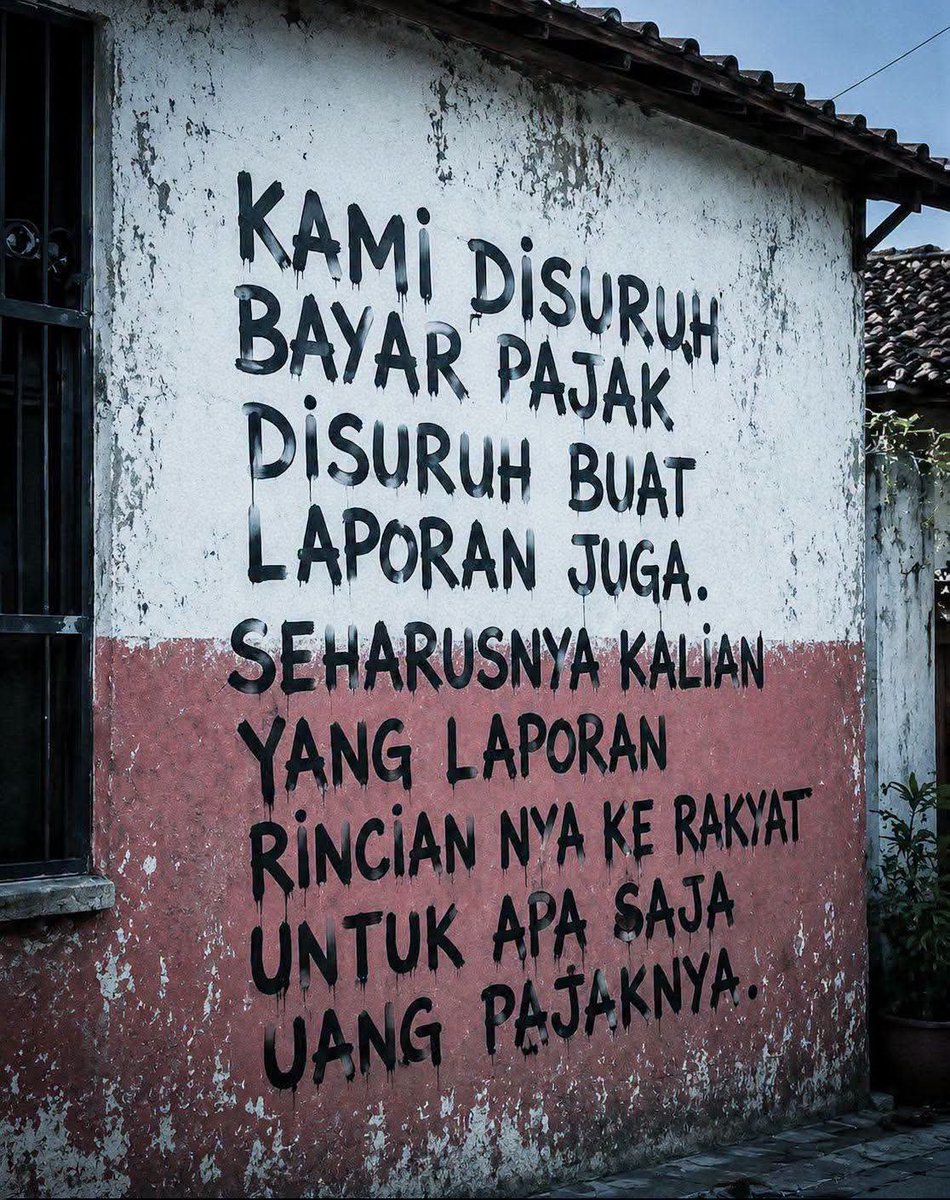 KAMi DiSURUH
BAYAR PAJAK
DiSURUH BUAT
LAPORAN JUGA.
SEHARUSNYA KALiAN
YANG LAPORAN
RiNCiAN NYA KE RAKYAT
UNTUK APA SAJA
UANG PAJAKNYA.